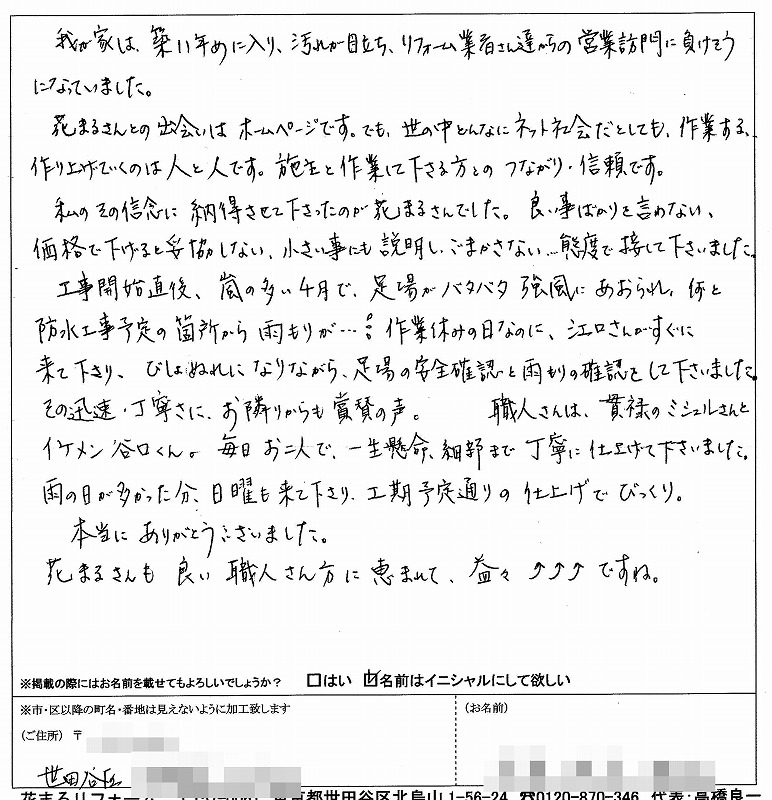 我が家は、築11年めに入り、汚れが目立ち、リフォーム業者さん達からの営業訪問に負けそう
になっていました。
花まるさんとの出会いはホームページです。でも、世の中どんなにネット社会だとしても、作業する、
作り上げていくのは人と人です。施主と作業して下さる方とのつながり・信頼です。
私のその信念に納得させて下さったのが花まるさんでした。良い事ばかりを言わない、
価格で下げると妥協しない、小さい事にも説明し、ごまかさない…態度で接して下さいました。
工事開始直後、嵐の多い4月で、足場がバタバタ強風にあおられ、何と
防水工事予定の箇所から雨もりが…。作業休みの日なのに、江口さんがすぐに
来て下さり、びしょぬれになりながら、足場の安全確認と雨もりの確認をして下さいました。
その迅速・丁寧さに、お隣りからも賞賛の声。 職人さんは、貫禄のミシェルさんと
イケメン谷口くん。毎日お二人で、一生懸命、細部まで丁寧に仕上げて下さいました。
雨の日が多かった分、日曜も来て下さり、工期予定通りの仕上げでびっくり。
本当にありがとうございました。
花まるさんも良い職人さん方に恵まれて、益々↑↑↑ですね。
※掲載の際にはお名前を載せてもよろしいでしょうか? □はい ☑名前はイニシャルにして欲しい
※市・区以降の町名・番地は見えないように加工致します
(お名前)
(ご住所) 〒
世田谷区
花まるリフォーム 世田谷区北烏山1-56-24 ☎0120-870-346 代表:高橋良一